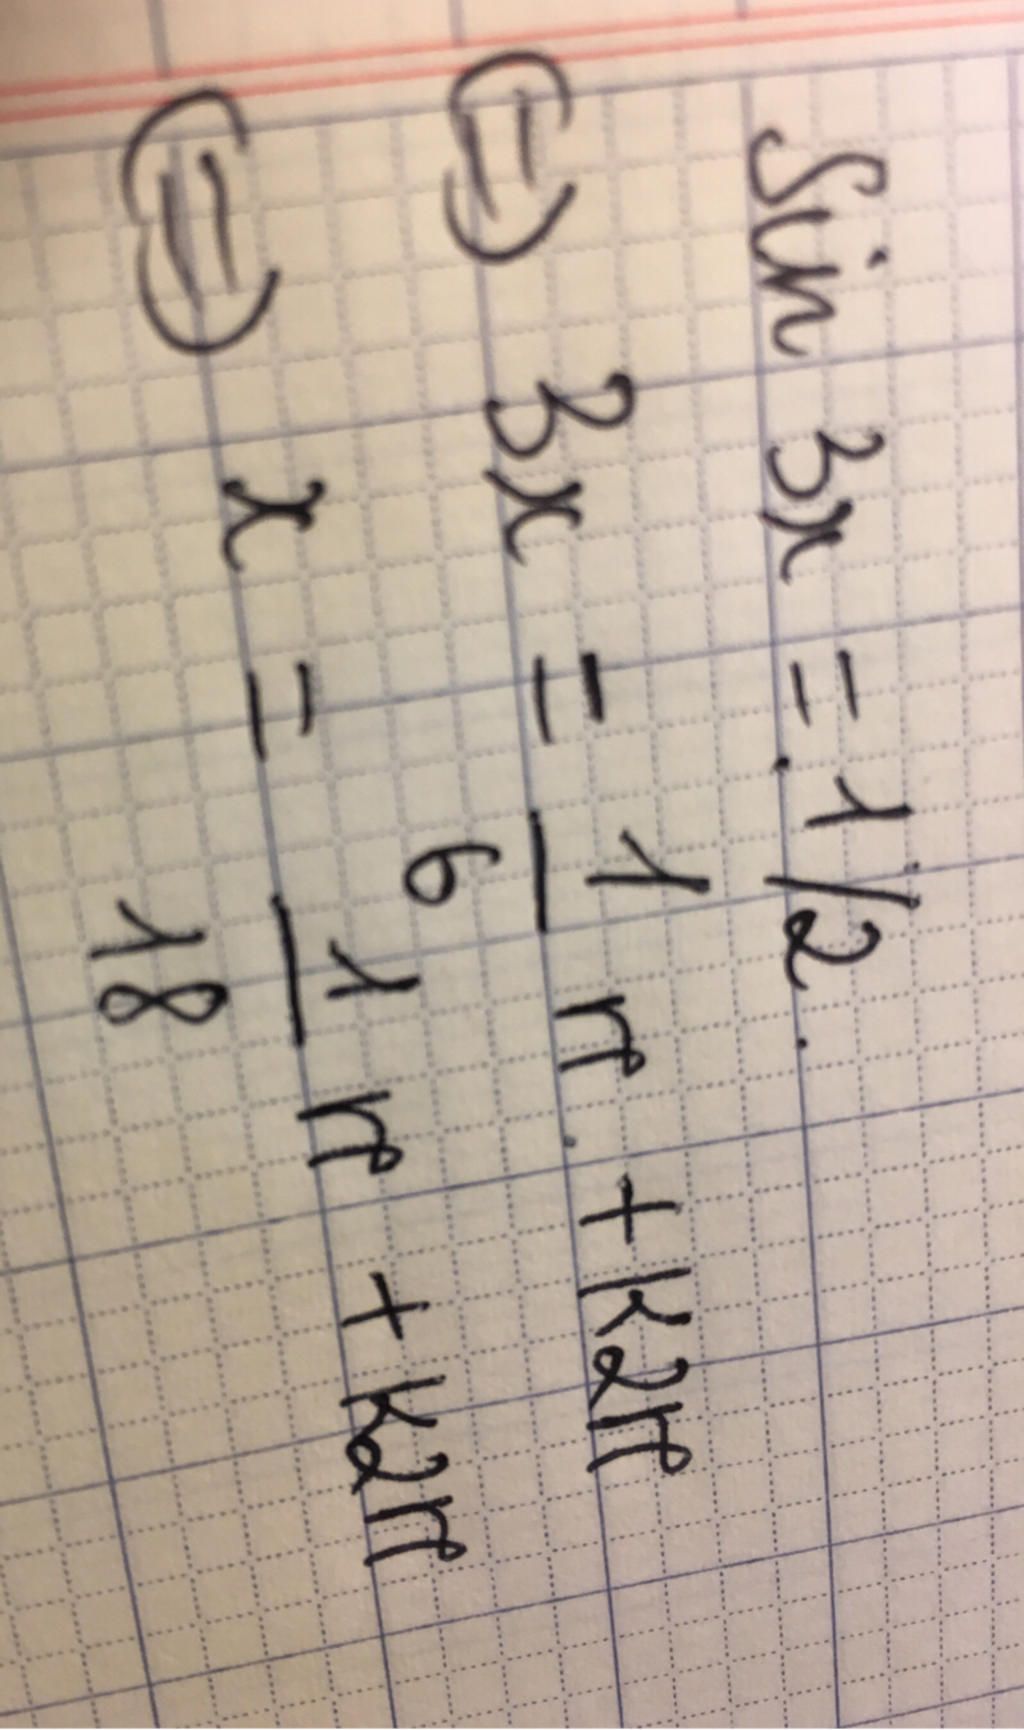 Sin 3x = 1/2.
(=) 3x = 1/6 π + k2π
(=) x = 1/18 π + k2π